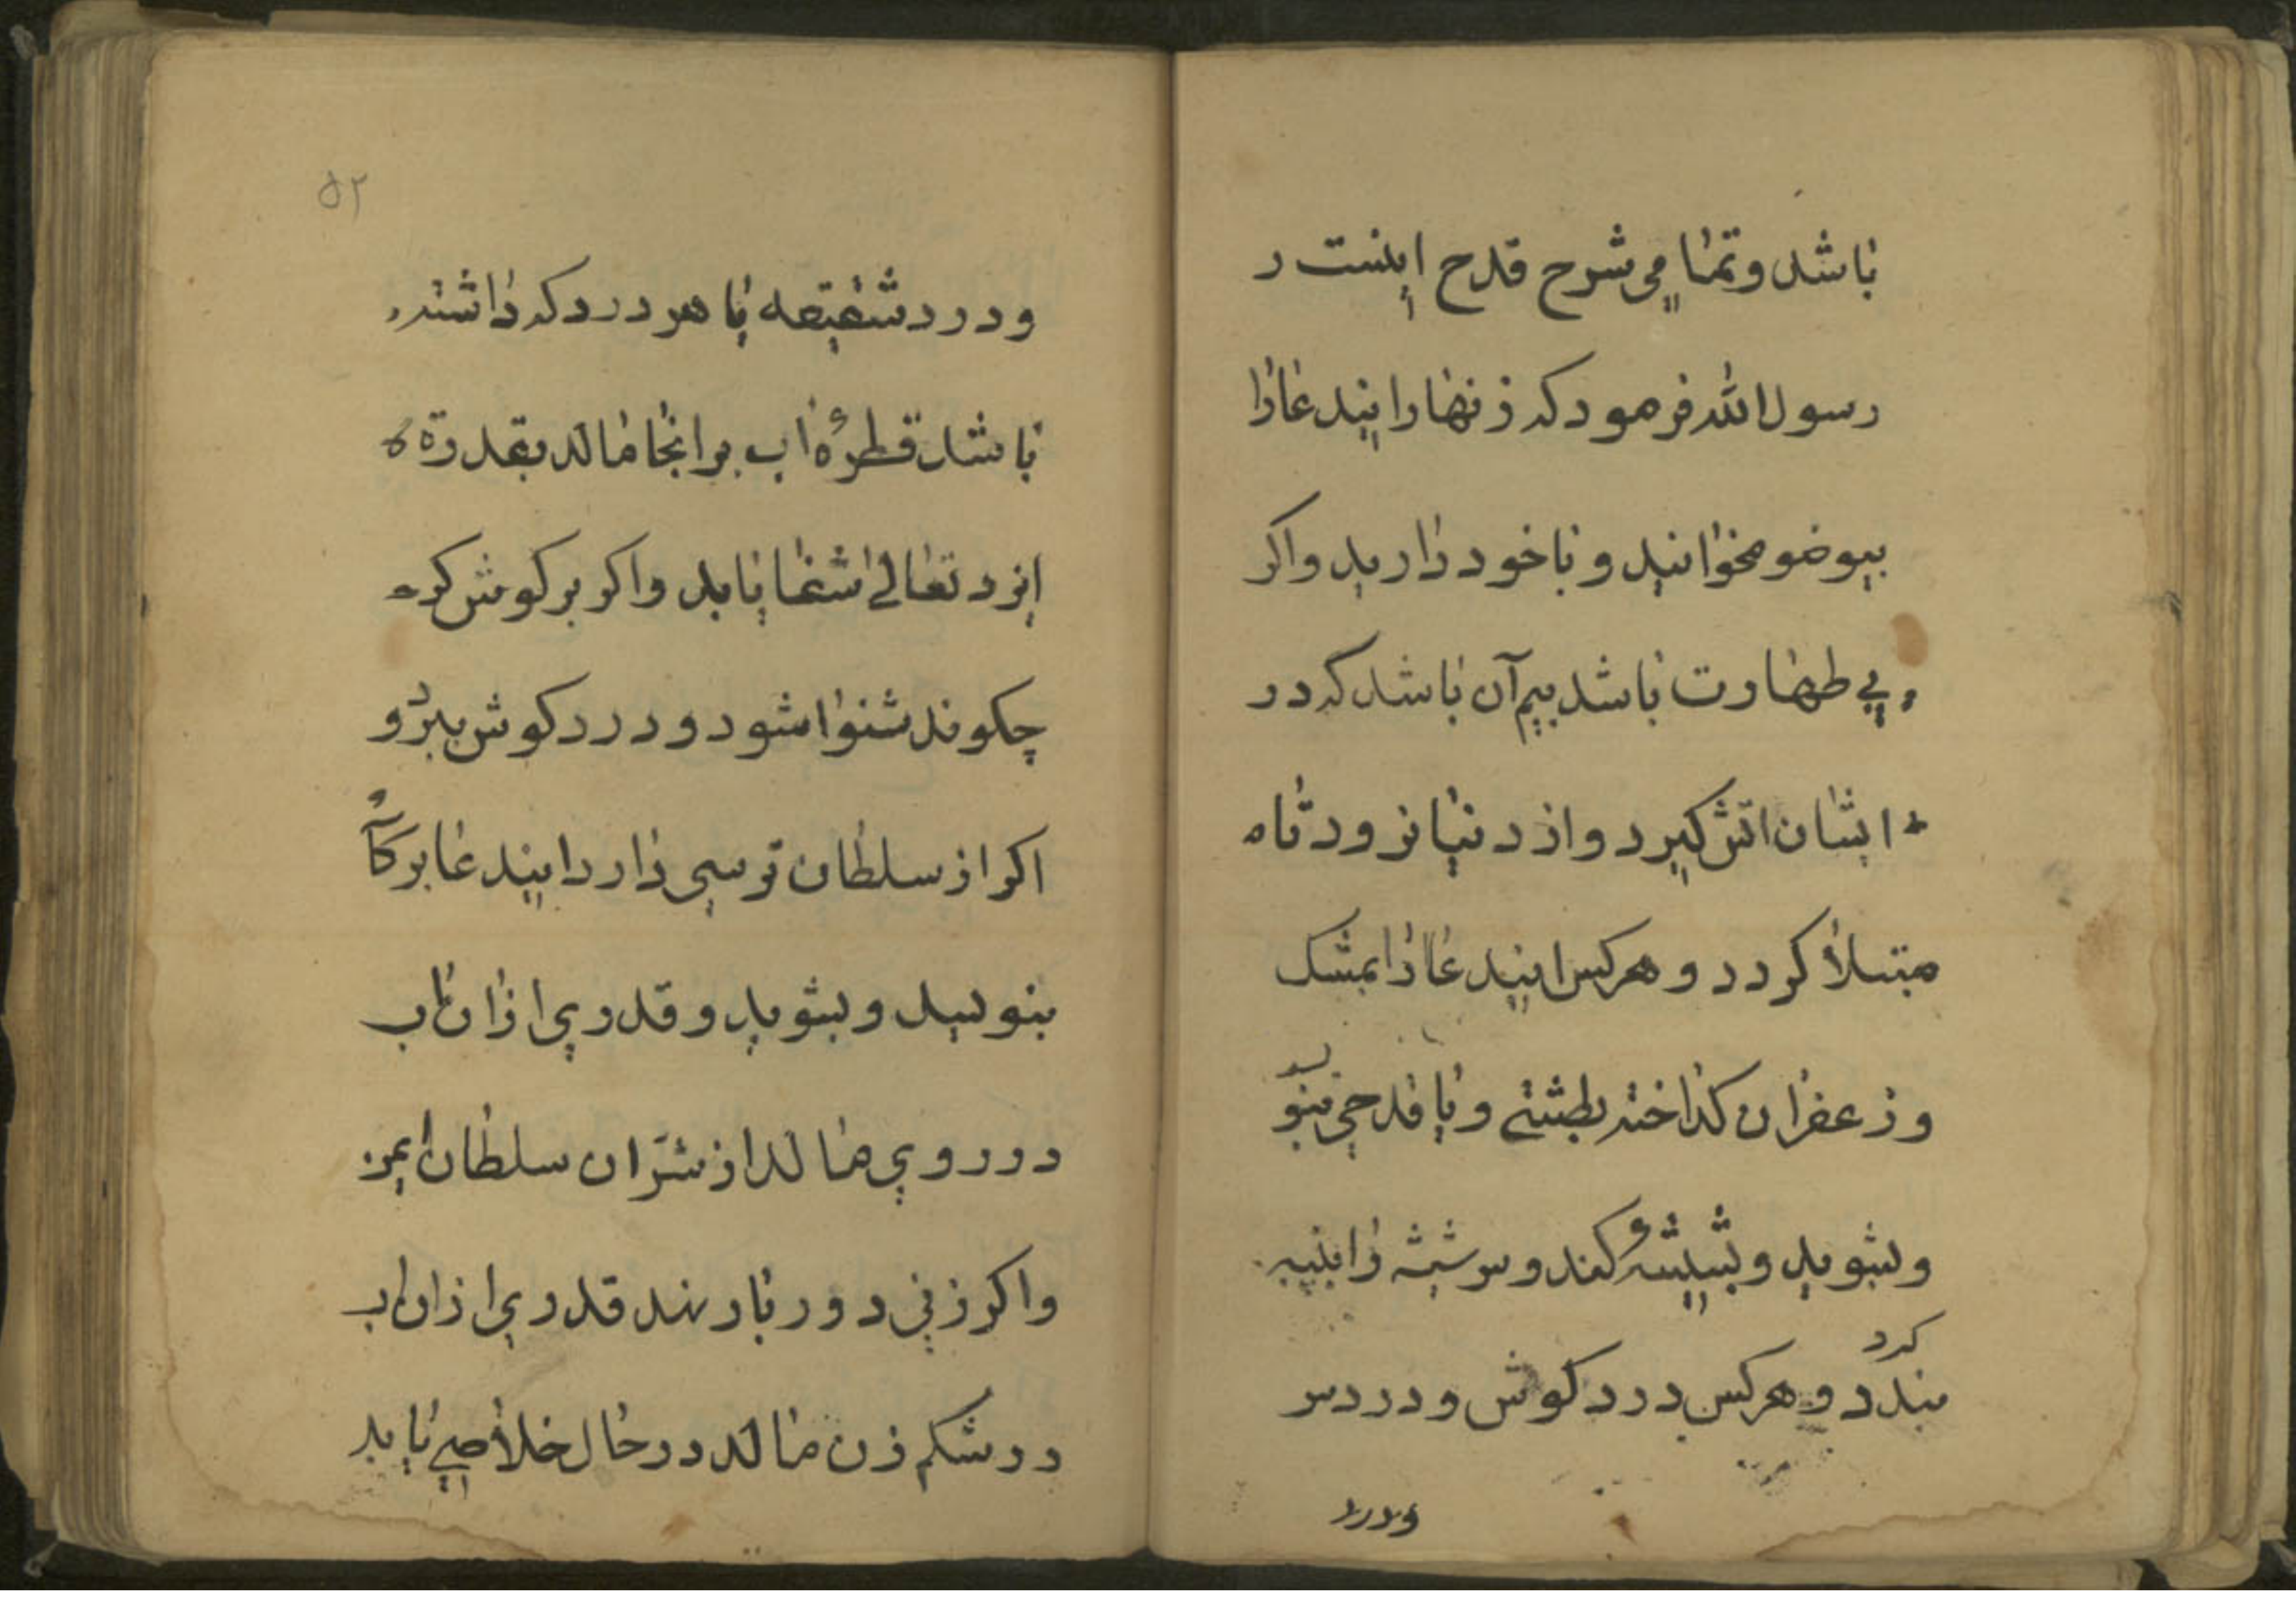 باشد و تمامی شرح قدح اینست ر
رسول الله فرمود که زنهار این دعا را
بیوضو مخوانید و با خود دارید و اکر
بی طهارت باشد بیم آن باشد که در
ایشان اتش کیرد و از دنیا نرود تا ه
مبتلا کردد و هر کس این دعا را بمشک
و زعفران کداخته بطشتی و یا قدحی بنو
یسد
و بشوید و بشیشه کند و سر شیشه را بپنبه
کرد
بندد و هر کس درد کوش و درد سر
و درد
۵۲
و درد شقیقه یا هر درد که داشته
باشد قطرهٔ اب بر انجا مالد بقدرة
ایزد تعالی شفا یابد و اکر بر کوش کر
چکوند شنوا شود و درد کوش ببرد و
اکر از سلطان ترسی دارد این دعا بر
بنویسد و بشوید و قدری ازان اب
در روی مالد از شرّ ان سلطان ایمن
و اکر زنی دور بار نهد قدری ازان اب
در شکم زن مالد در حال خلاصی یابد